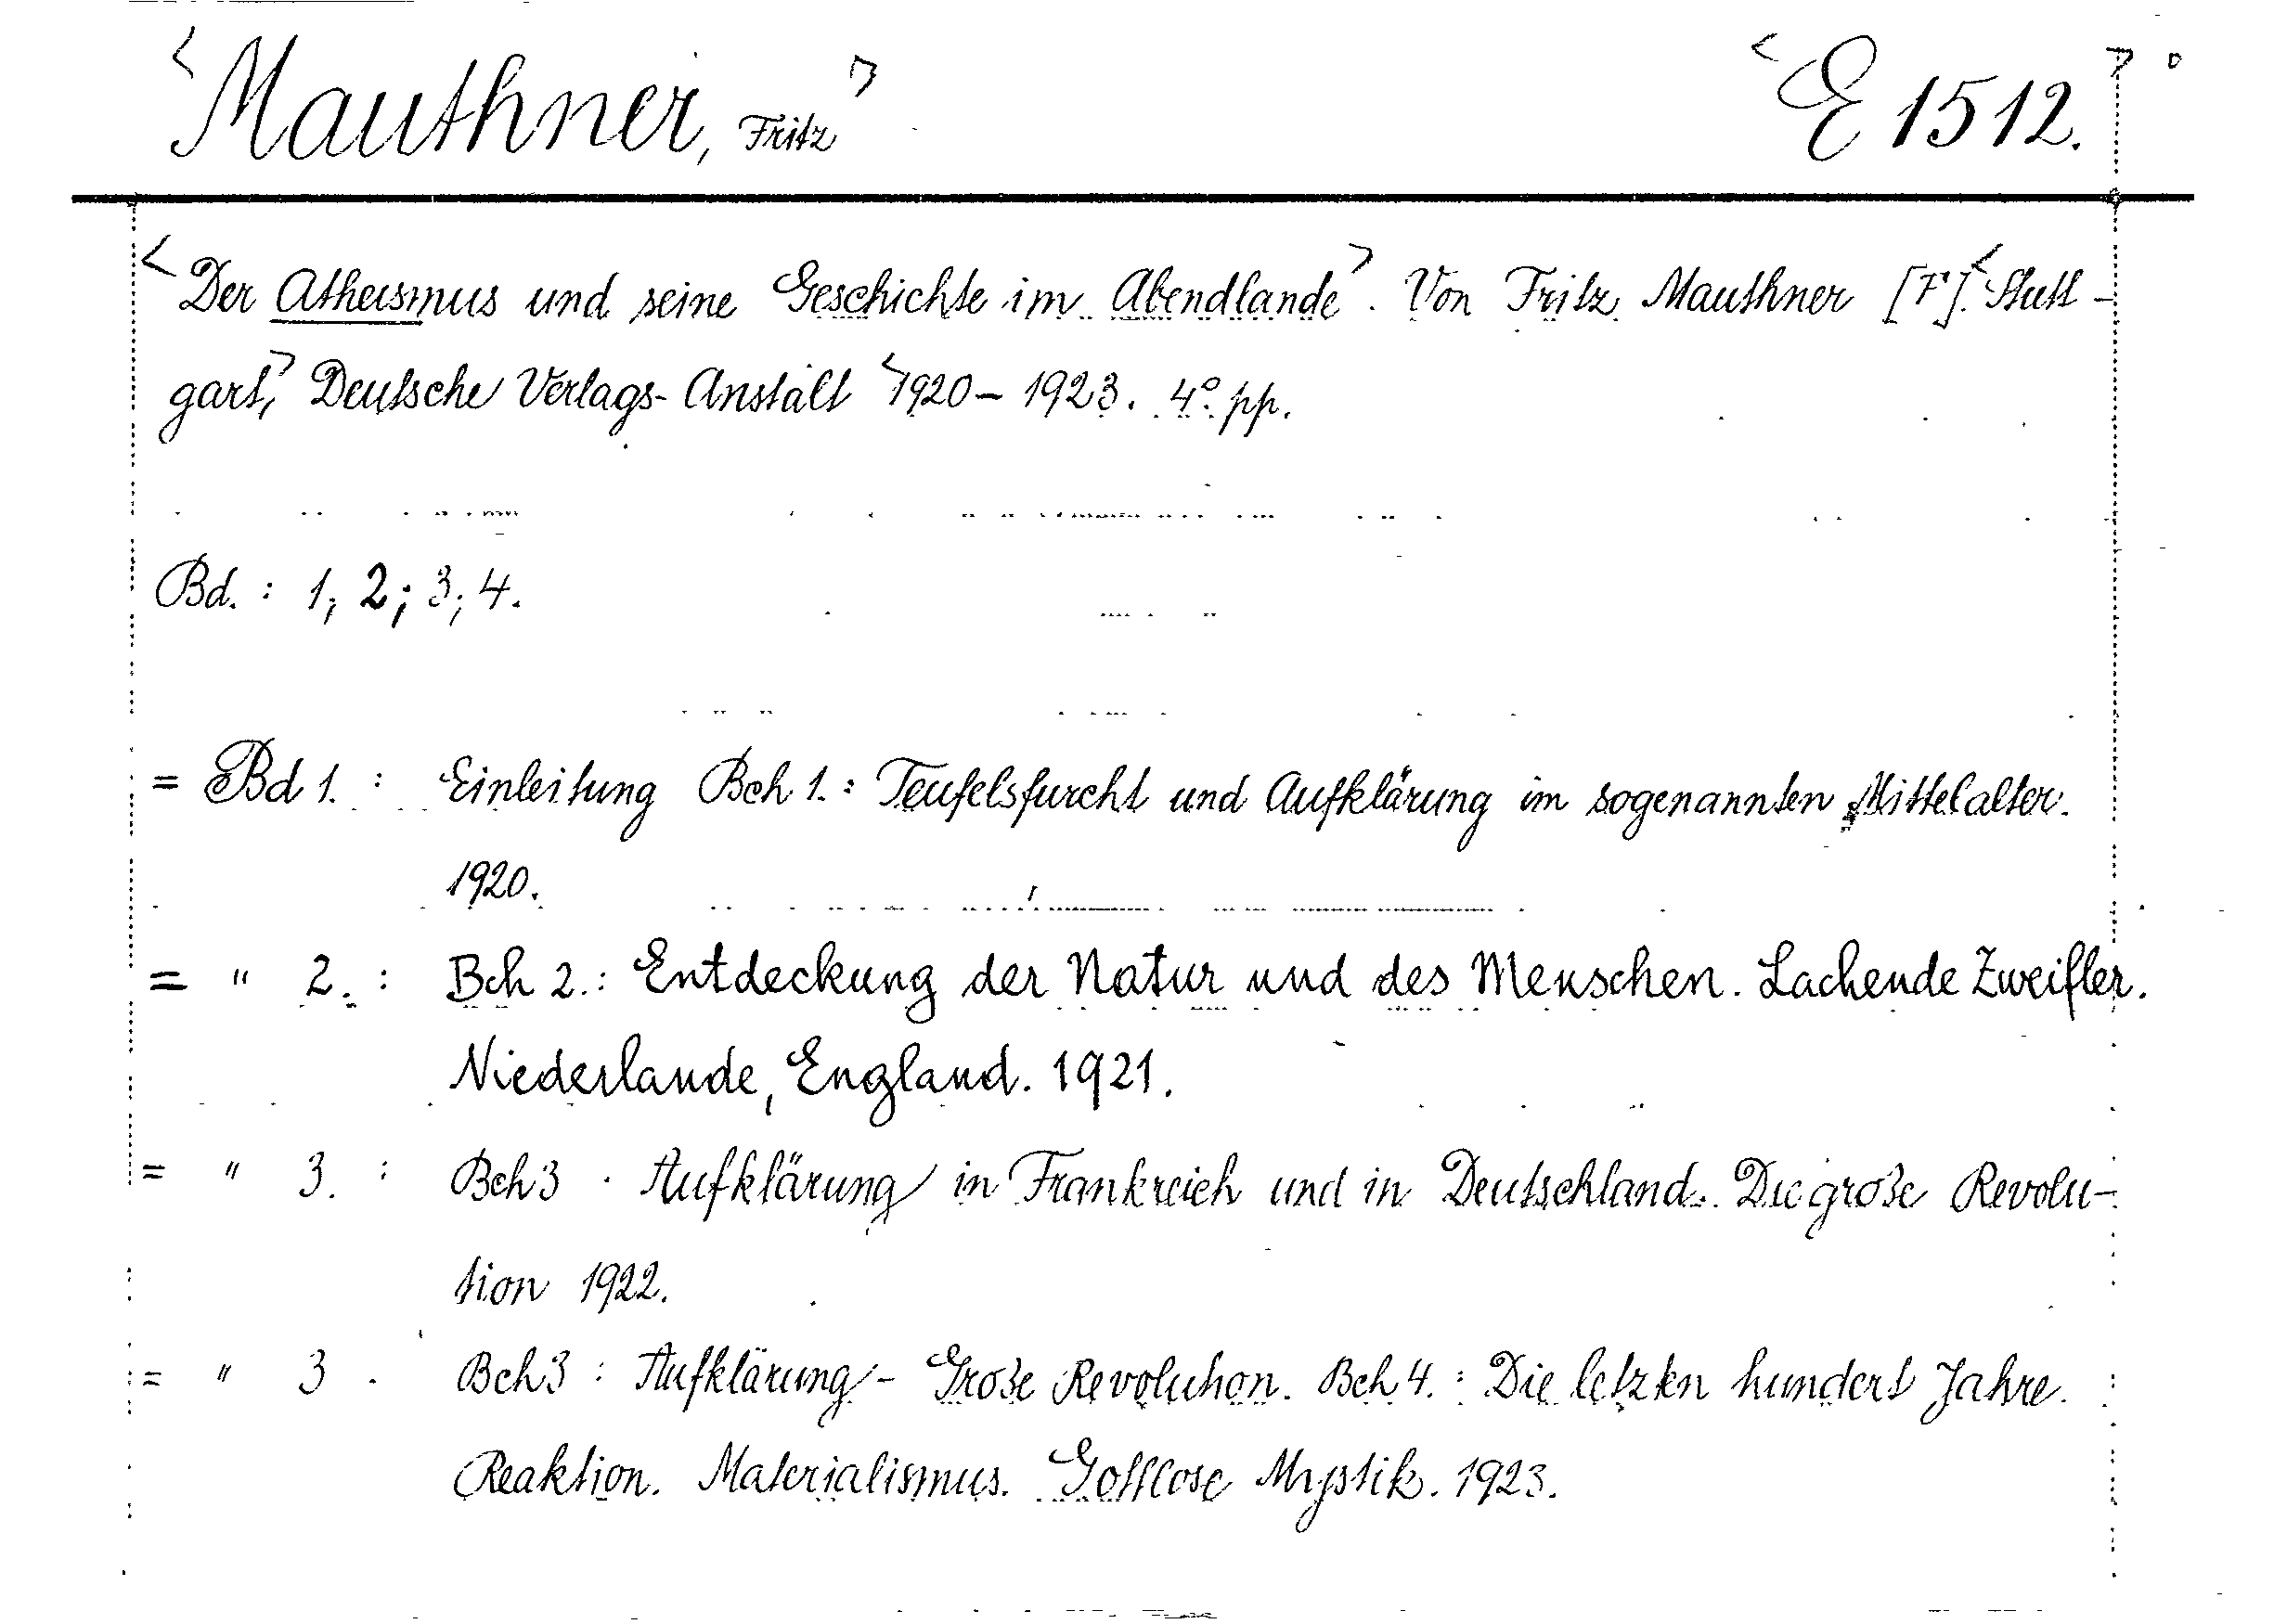 <Mauthner, Fritz> <E 1512.>
<Der Atheismus und seine Geschichte im Abendlande>. Von Fritz Mauthner [F]. <Stutt-
gart,> Deutsche Verlags-Anstalt <1920-1923. 4° pp.
Bd. : 1; 2; 3; 4.
= Bd 1. : Einleitung Bch 1. : Teufelsfurcht und Aufklärung im sogenannten Mittelalter.
1920.
= " 2. : Bch 2. : Entdeckung der Natur und des Menschen. Lachende Zweifler.
Niederlande, England. 1921.
= " 3. : Bch 3 . Aufklärung in Frankreich und in Deutschland. Die große Revolu-
tion 1922.
= " 3 . Bch 3 : Aufklärung - Große Revolution. Bch 4. : Die letzten hundert Jahre.
Reaktion. Materialismus. Gottlose Mystik. 1923.